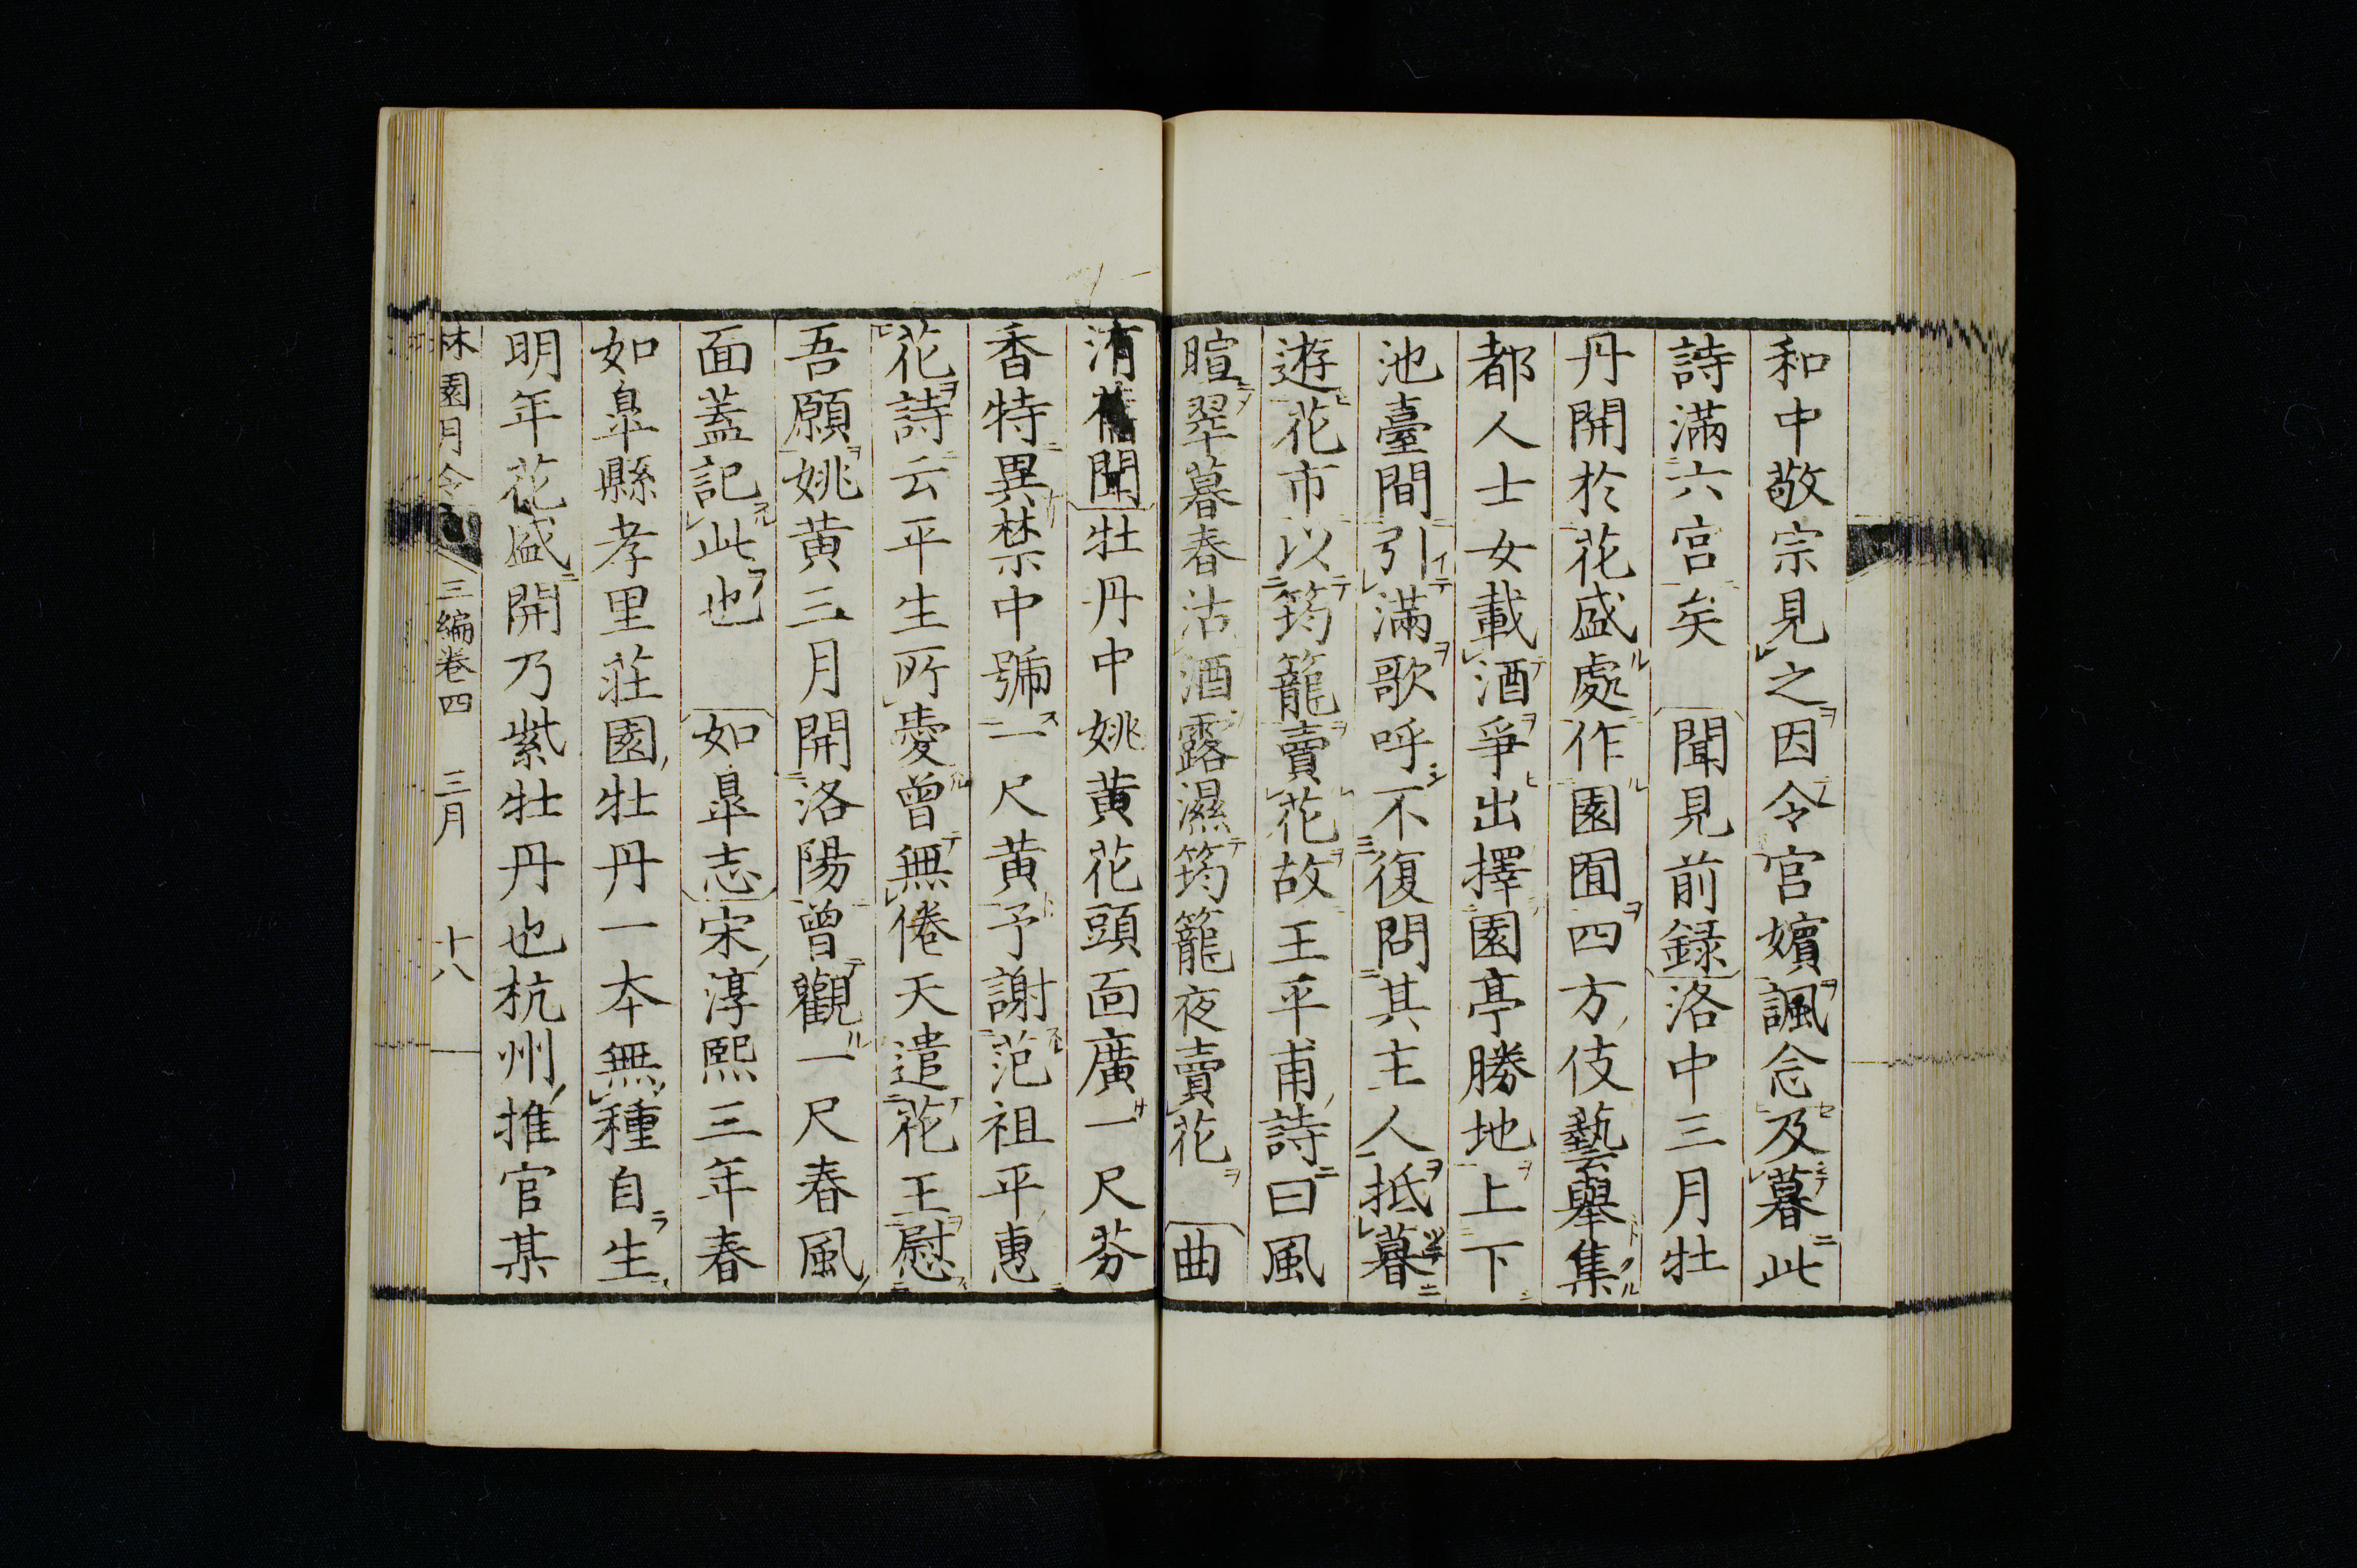 和中敬宗見之因令官嬪諷念及暮此
詩滿六宮矣　聞見前録洛中三月牡
丹開於花盛處作園囿四方伎藝舉集
都人士女載酒爭出擇園亭勝地上下
池臺間引滿歌呼不復問其主人抵暮
遊花市以筠籠賣花故王平甫詩曰風
暄翠暮春沽酒露濕筠籠夜賣花　曲
洧聞牡丹中姚黄花頭面廣一尺芬
香特異禁中號一尺黄予謝范祖平惠
花詩云平生所愛曾無倦天遣花王慰
吾願姚黄三月開洛陽曾觀一尺春風
面蓋記此也　如皐志宋淳熙三年春
如皐縣孝里荘園牡丹一本無種自生
明年花盛開乃紫牡丹也杭州推官某
林園月令　三編卷四　三月　十八